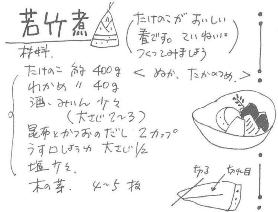 若竹煮
たけのこが おいしい
春です。 ていねいに
つくってみましょう
材料.
たけのこ 約 400g
< ぬか、たかのつめ。>
わかめ 〃 40g
酒、みりん 少々
(大さじ2〜3)
昆布とかつおのだし 2カップ
うす口しょうゆ 大さじ1/2
塩 少々
木の芽. 4〜5枚
切る
切れ目